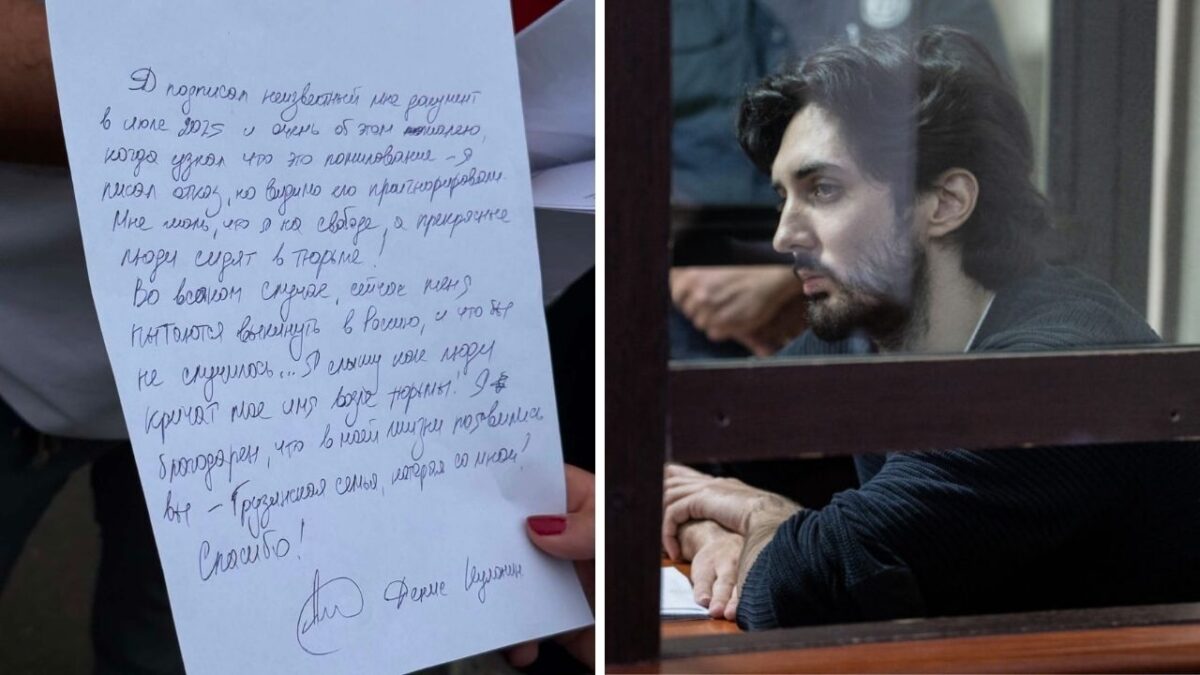 Я подписал неизвестный мне документ
в июле 2025 и очень об этом жалею,
когда узнал что это помилование – я
писал отказ, но видимо его проигнорировали.
Мне жаль, что я на свободе, а прекрасные
люди сидят в тюрьме!
Во всяком случае, сейчас меня
пытаются выкинуть в Россию, и что бы
не случилось... Я слышу как люди
кричат мое имя возле тюрьмы! Я
благодарен, что в моей жизни появились
вы – Грузинская семья, которая со мной!
Спасибо!
Денис